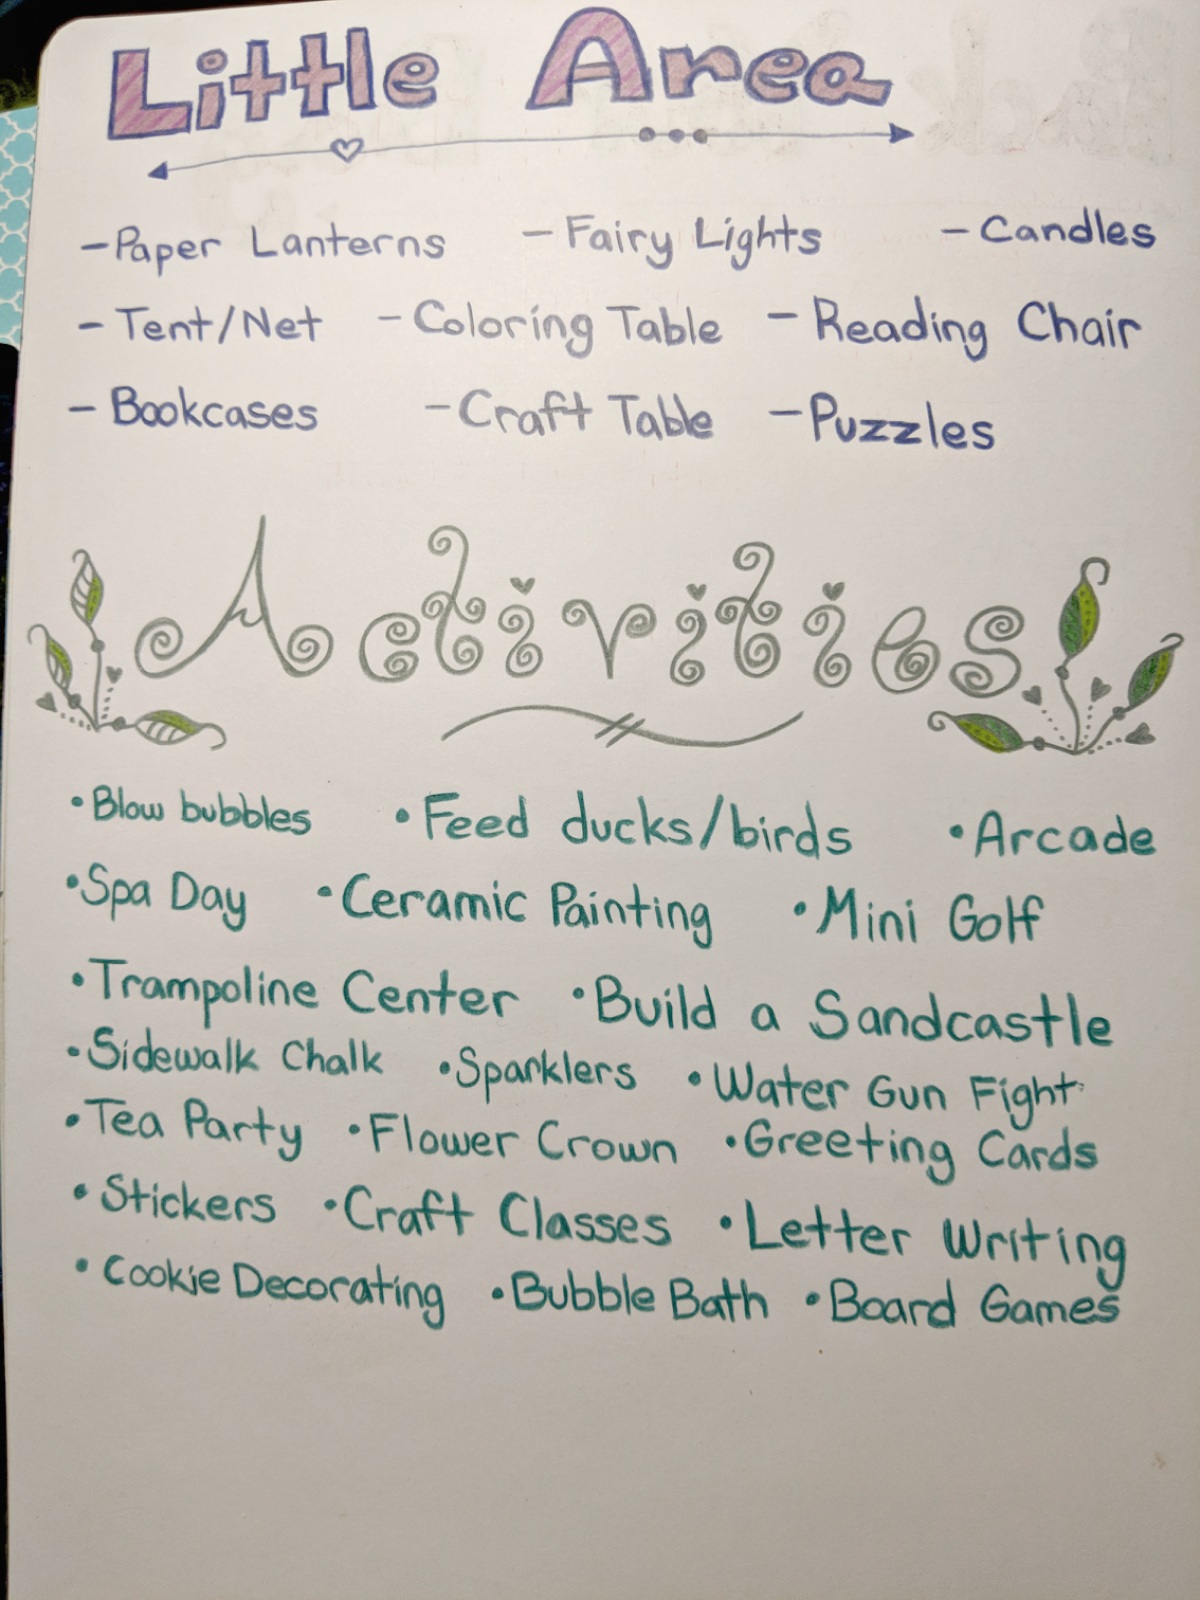 Little Area
- Paper Lanterns - Fairy Lights - Candles
- Tent/Net - Coloring Table - Reading Chair
- Bookcases - Craft Table - Puzzles
Activities
• Blow bubbles • Feed ducks/birds • Arcade
• Spa Day • Ceramic Painting • Mini Golf
• Trampoline Center • Build a Sandcastle
• Sidewalk Chalk • Sparklers • Water Gun Fight
• Tea Party • Flower Crown • Greeting Cards
• Stickers • Craft Classes • Letter Writing
• Cookie Decorating • Bubble Bath • Board Games